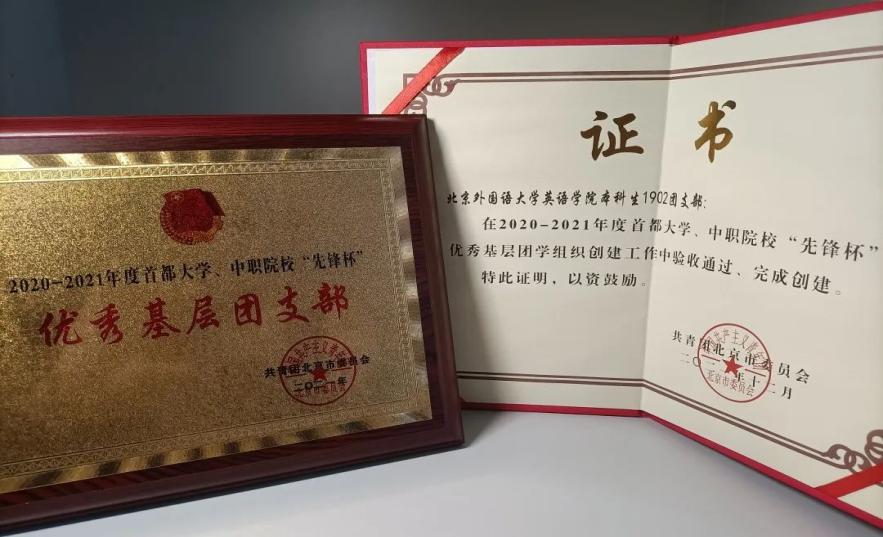 2020-2021年度首都大学、中职院校“先锋杯”
优秀基层团支部
共青团北京市委员会
二〇二一年
证书
北京外国语大学英语学院本科生1902团支部:
在2020-2021年度首都大学、中职院校“先锋杯”
优秀基层团学组织创建工作中验收通过、完成创建。
特此证明,以资鼓励。
共青团北京市委员会
二〇二一年十二月
北京市委员会